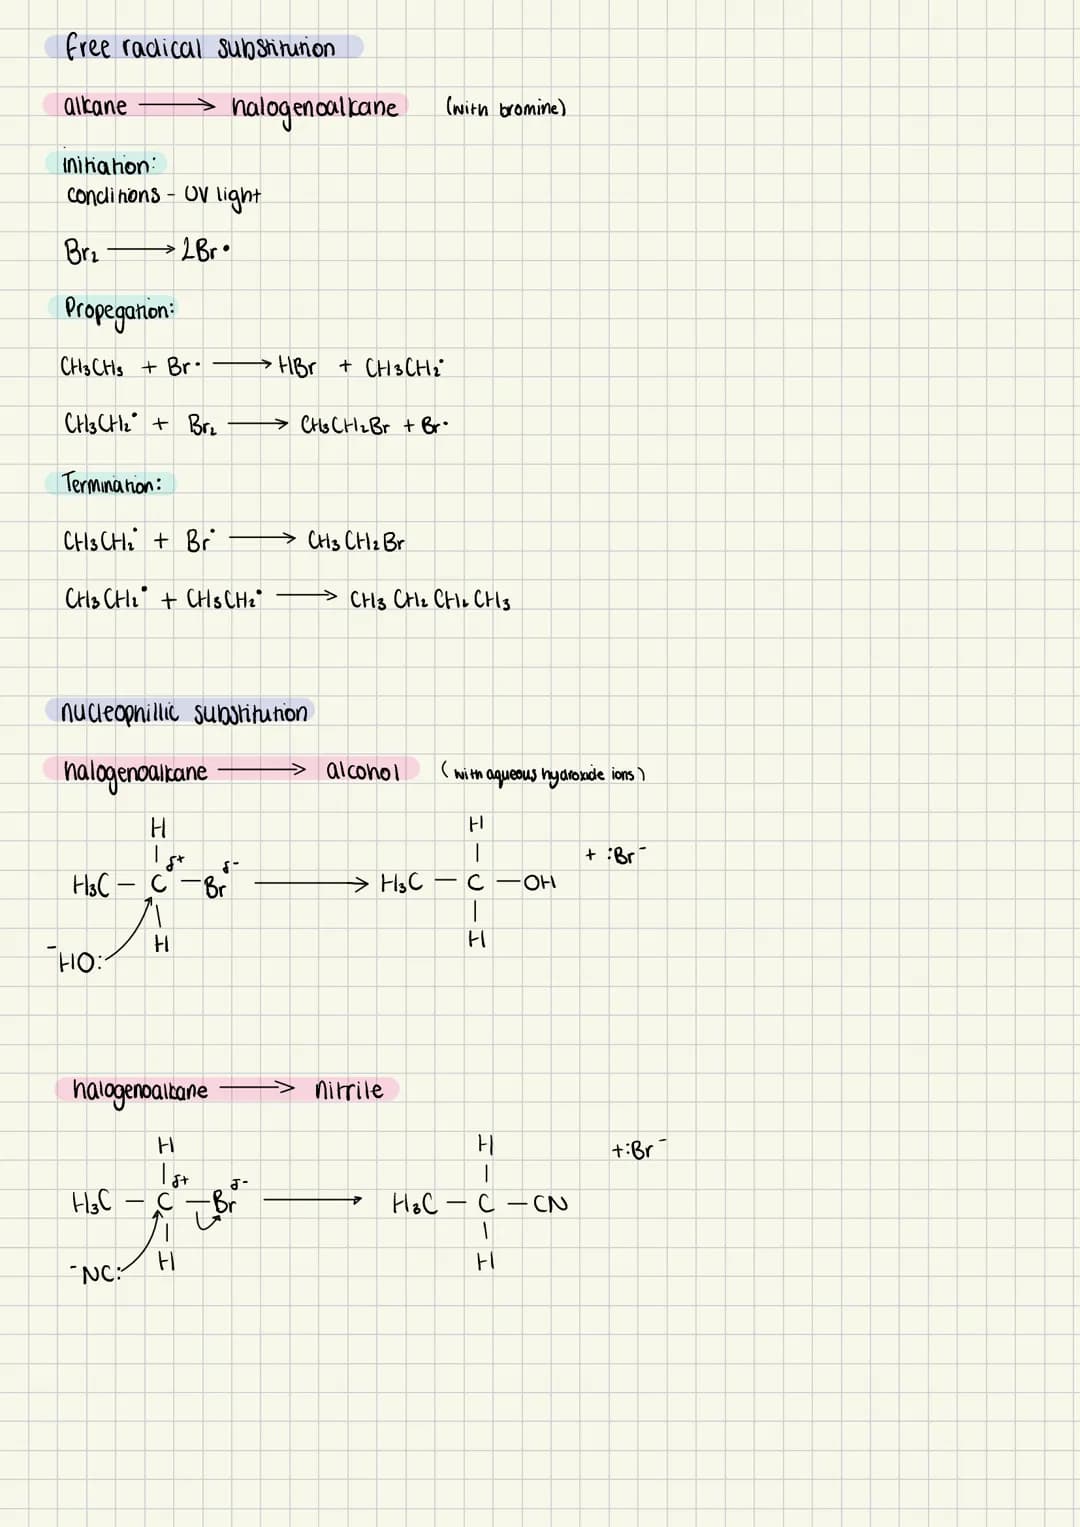 free radical substitution
alkane ⟶ halogenoalkane (with bromine)
initiation:
conditions - UV light
Br₂ ⟶ 2Br•
Propegation:
CH₃CH₃ + Br• ⟶ HBr + CH₃CH₂•
CH₃CH₂• + Br₂ ⟶ CH₃CH₂Br + Br•
Termination:
CH₃CH₂• + Br• ⟶ CH₃CH₂Br
CH₃CH₂• + CH₃CH₂• ⟶ CH₃CH₂CH₂CH₃
nucleophillic substitution
halogenoalkane ⟶ alcohol (with aqueous hydroxide ions)
H H
δ+ δ- + :Br⁻
H₃C – C – Br ⟶ H₃C – C – OH
H H
⁻HO:
halogenoalkane ⟶ nitrile
H H +:Br⁻
δ+ δ-
H₃C – C – Br ⟶ H₃C – C – CN
⁻NC: H H